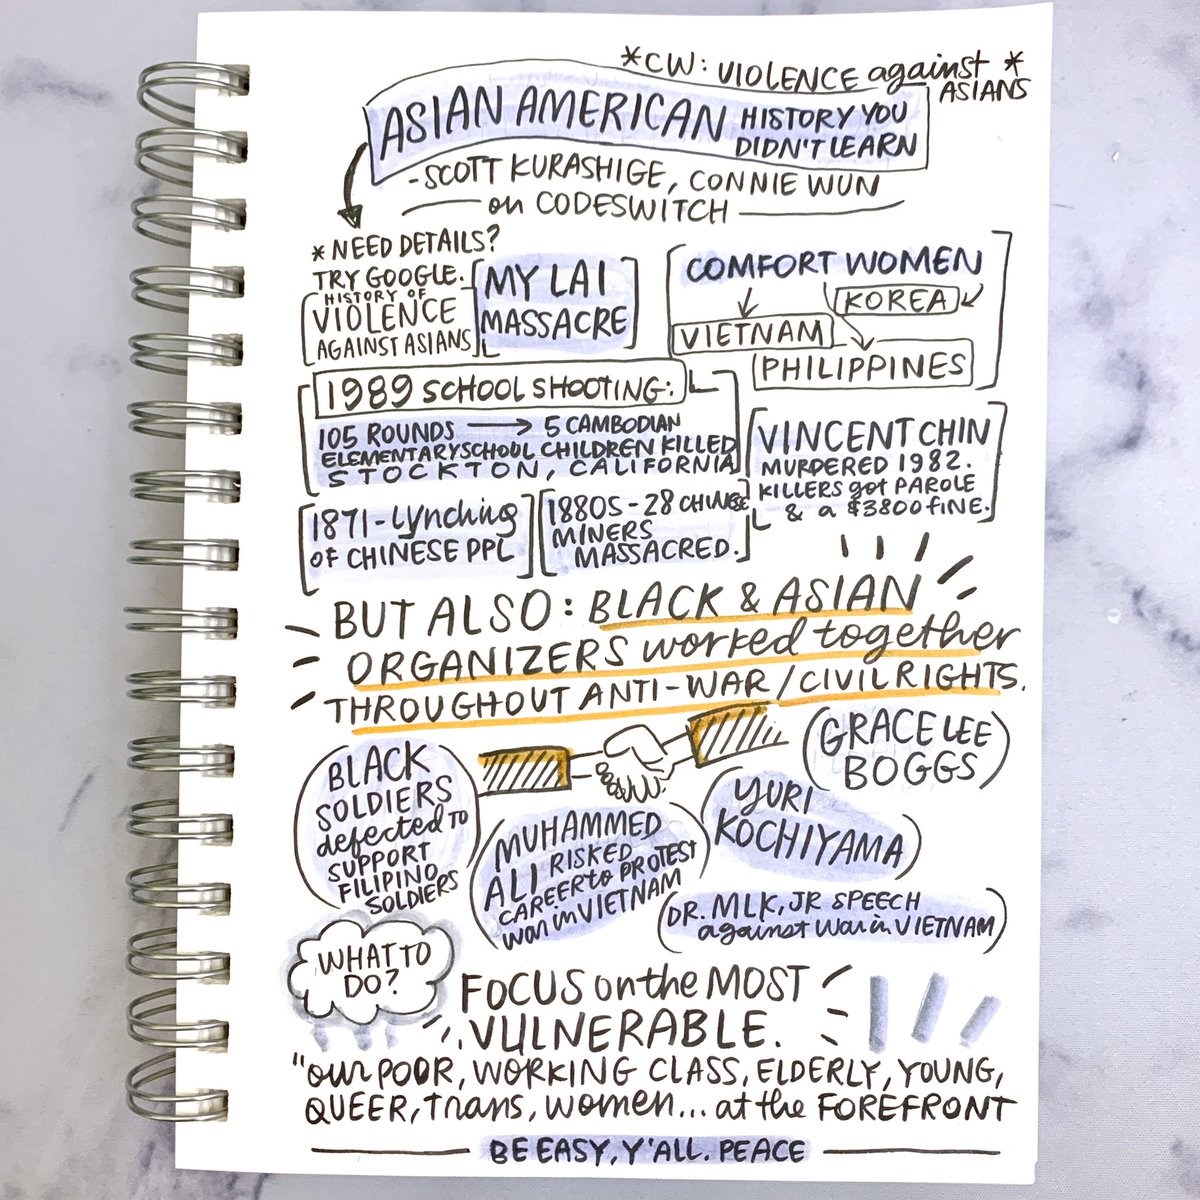 *CW: VIOLENCE against *
ASIANS
ASIAN AMERICAN HISTORY YOU
DIDN'T LEARN
-SCOTT KURASHIGE, CONNIE WUN
on CODESWITCH
*NEED DETAILS?
TRY GOOGLE.
HISTORY OF
VIOLENCE
AGAINST ASIANS
MY LAI
MASSACRE
COMFORT WOMEN
KOREA
VIETNAM
PHILIPPINES
1989 SCHOOL SHOOTING:
105 ROUNDS → 5 CAMBODIAN
ELEMENTARY SCHOOL CHILDREN KILLED
STOCKTON, CALIFORNIA
VINCENT CHIN
MURDERED 1982.
KILLERS got PAROLE
& a $3800 FINE.
1871-Lynching
OF CHINESE PPL
1880S-28 CHINESE
MINERS
MASSACRED.
BUT ALSO: BLACK & ASIAN
ORGANIZERS worked together
THROUGHOUT ANTI-WAR/CIVIL RIGHTS.
BLACK
SOLDIERS
defected TO
SUPPORT
FILIPINO
SOLDIERS
MUHAMMED
ALI RISKED
CAREER to PROTEST
war in VIETNAM
YURI
KOCHIYAMA
GRACE LEE
BOGGS
DR. MLK, JR SPEECH
against war in VIETNAM
WHAT TO
DO?
FOCUS on the MOST
VULNERABLE.
"our POOR, WORKING CLASS, ELDERLY, YOUNG,
QUEER, trans, women... at the FOREFRONT
BE EASY, Y'ALL. PEACE